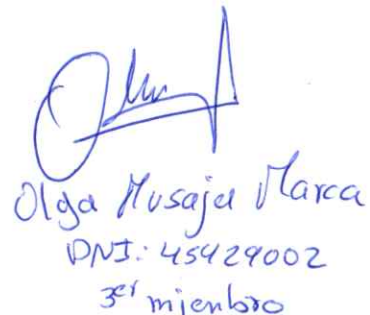 Olga Musaja Marca
DNI: 45429002
3er mienbro